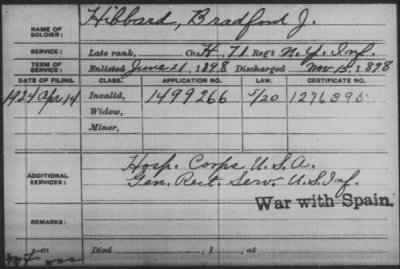 NAME OF SOLDIER: Hibbard, Bradford J.
SERVICE: Late rank, Co. H, 71 Reg't N.Y. Inf.
TERM OF SERVICE: Enlisted June 21, 1898 Discharged Nov 15, 1898
DATE OF FILING. CLASS. APPLICATION NO. LAW. CERTIFICATE NO.
1924 Apr. 14 Invalid, 1499266 5/20 1276395
Widow,
Minor,
ADDITIONAL SERVICES: Hosp. Corps U.S.A.
Gen. Rect. Serv. U.S. Inf.
War with Spain.
REMARKS:
Died , 1 , at